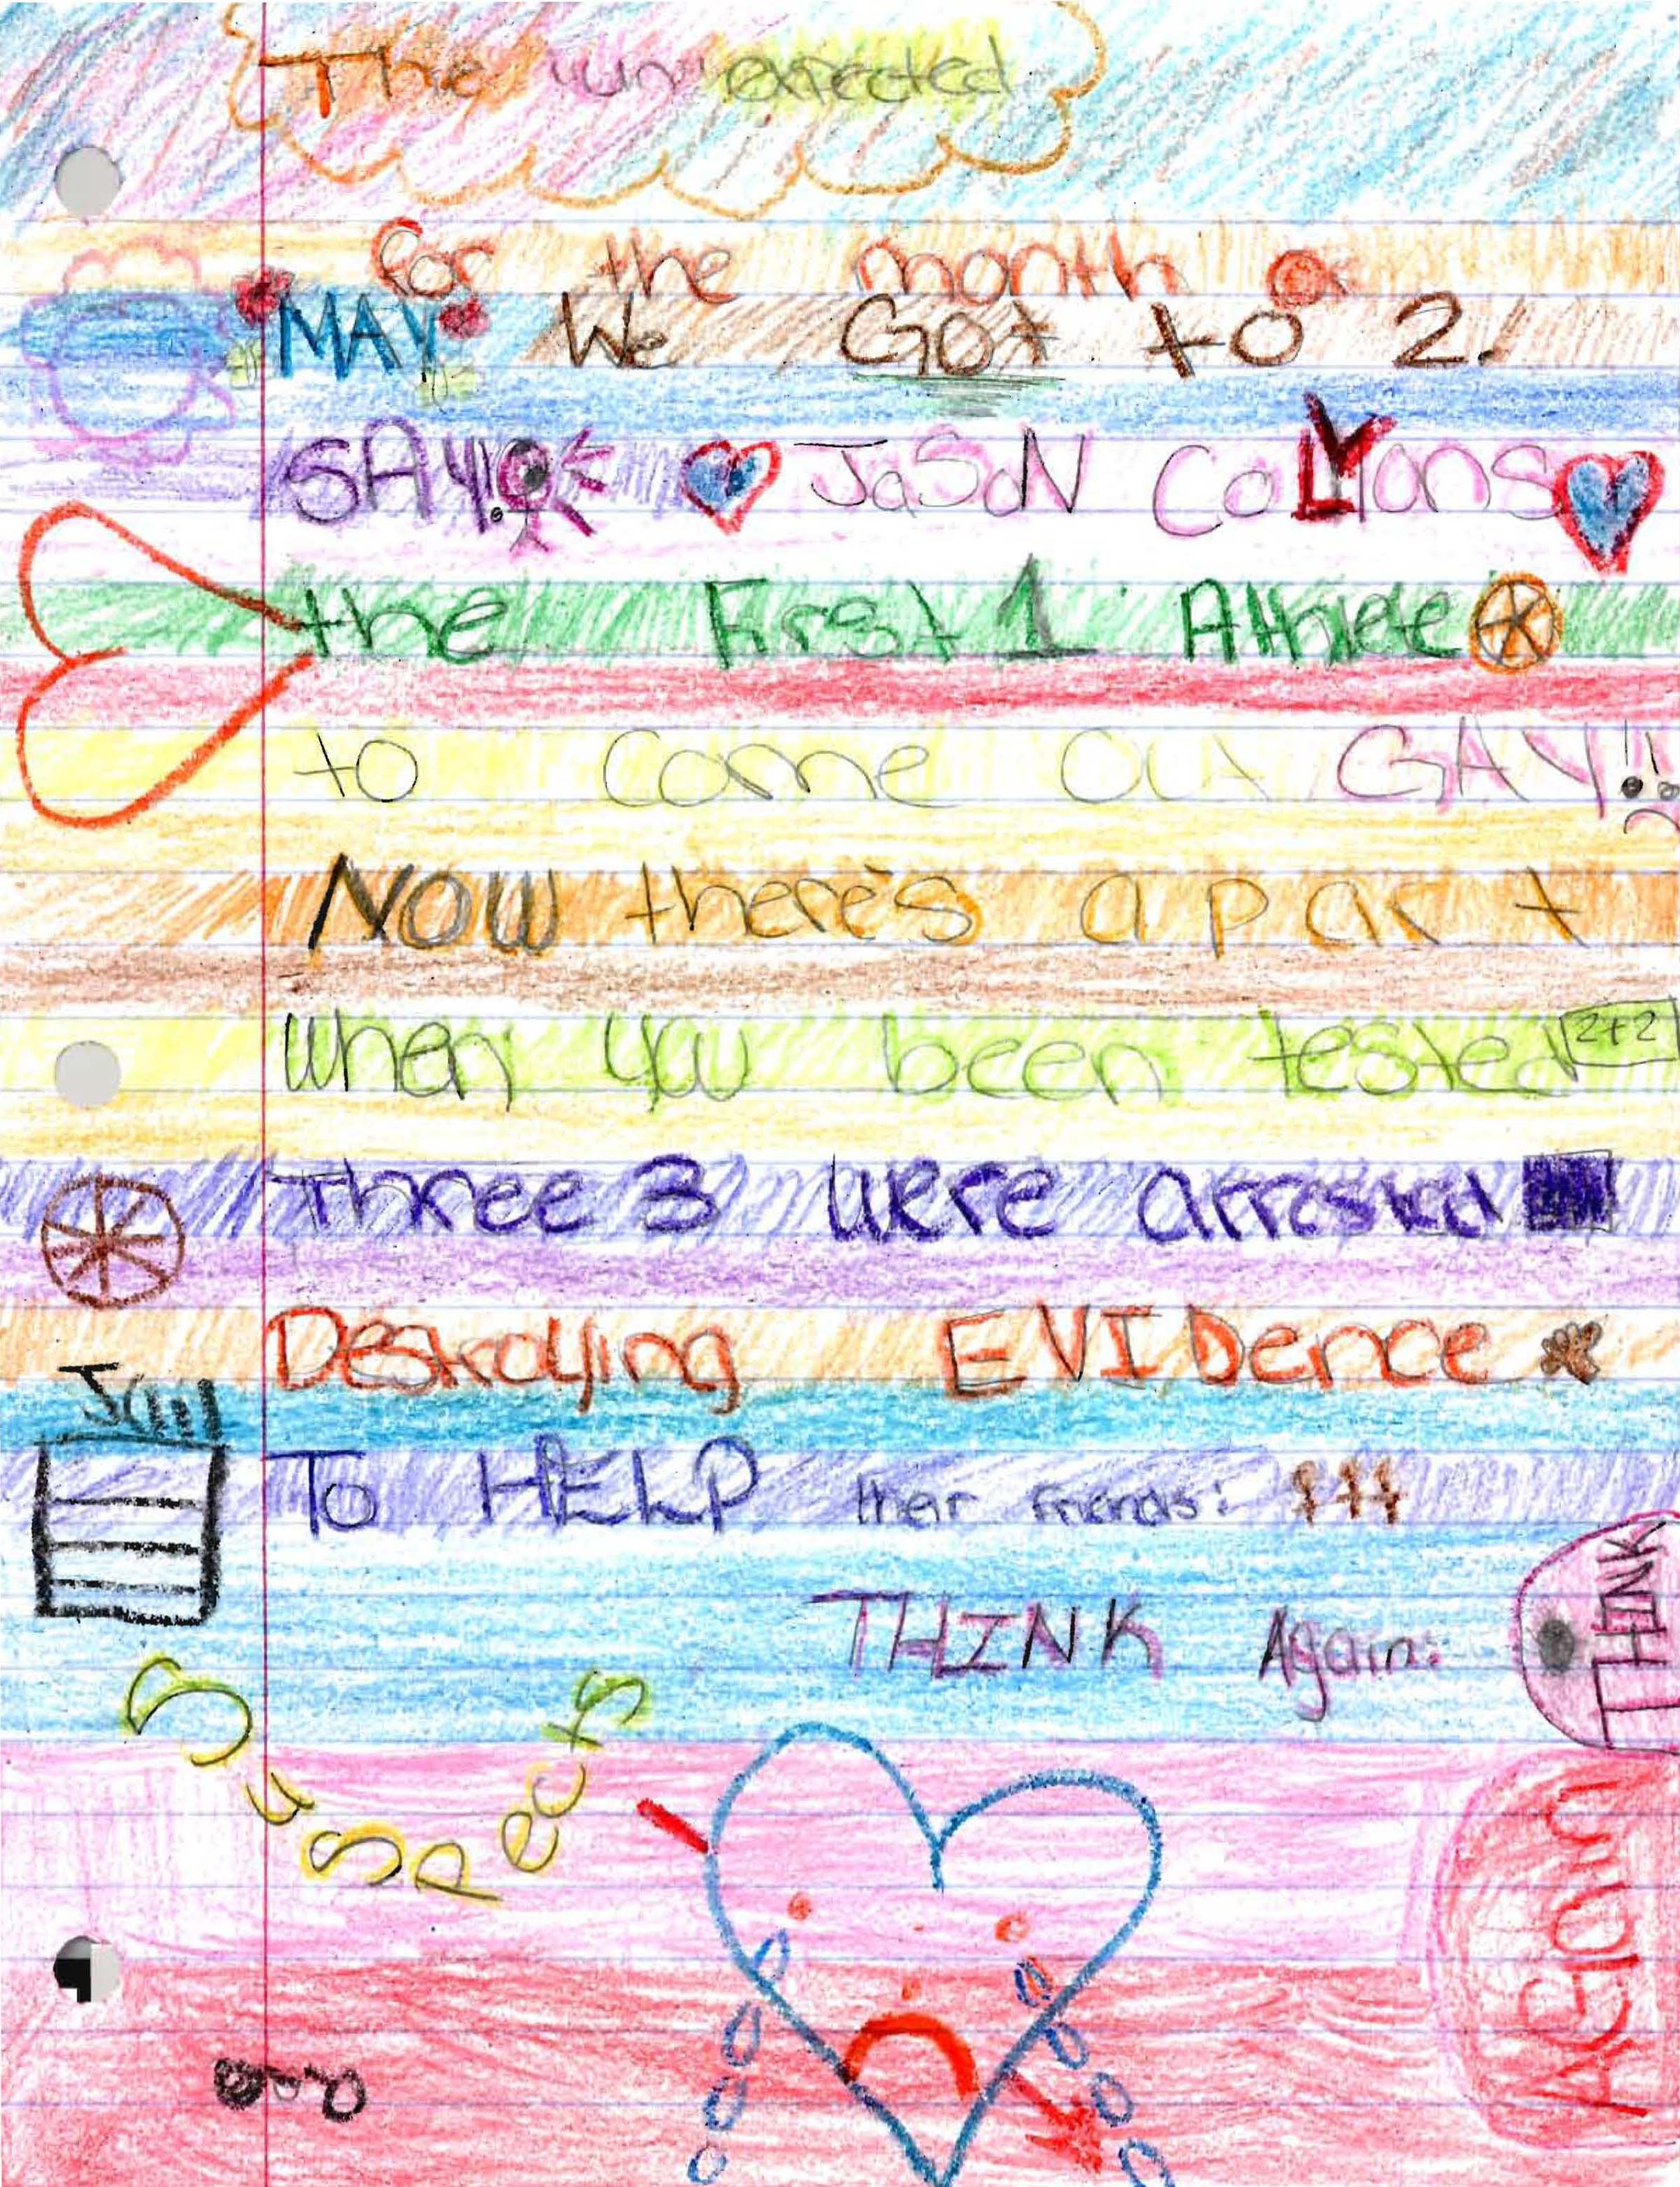 The unexpected
for the month a
MAY We GOt to 2!
SAY! JaSoN CoLYons
the First 1 Athlete
to come out GAY!!
NOW there's a part
when you been tested 2+2
Three 3 were arrested
Destroying EVIDence
Jail
To HELP their friends:
THINK Again:
THINK
Suspects
AGiowN